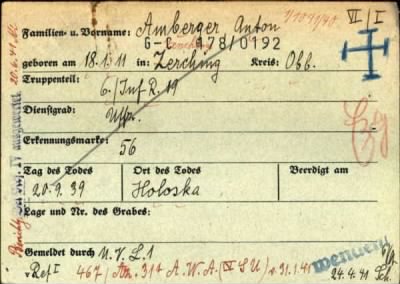 Familien- u. Vorname: Amberger Anton VI/I
G-C 178/0192
geboren am 18.1.11 in: Zerching Kreis: Obb.
Truppenteil: 6./Inf R. 19
Dienstgrad: Uffz.
Erkennungsmarke: 56
Tag des Todes Ort des Todes Beerdigt am
20.9.39 Holoska
Lage und Nr. des Grabes:
Gemeldet durch N.V.L.1
v Ref I 467/ 314 A.W.A. v. 31.1.41
24.4.41